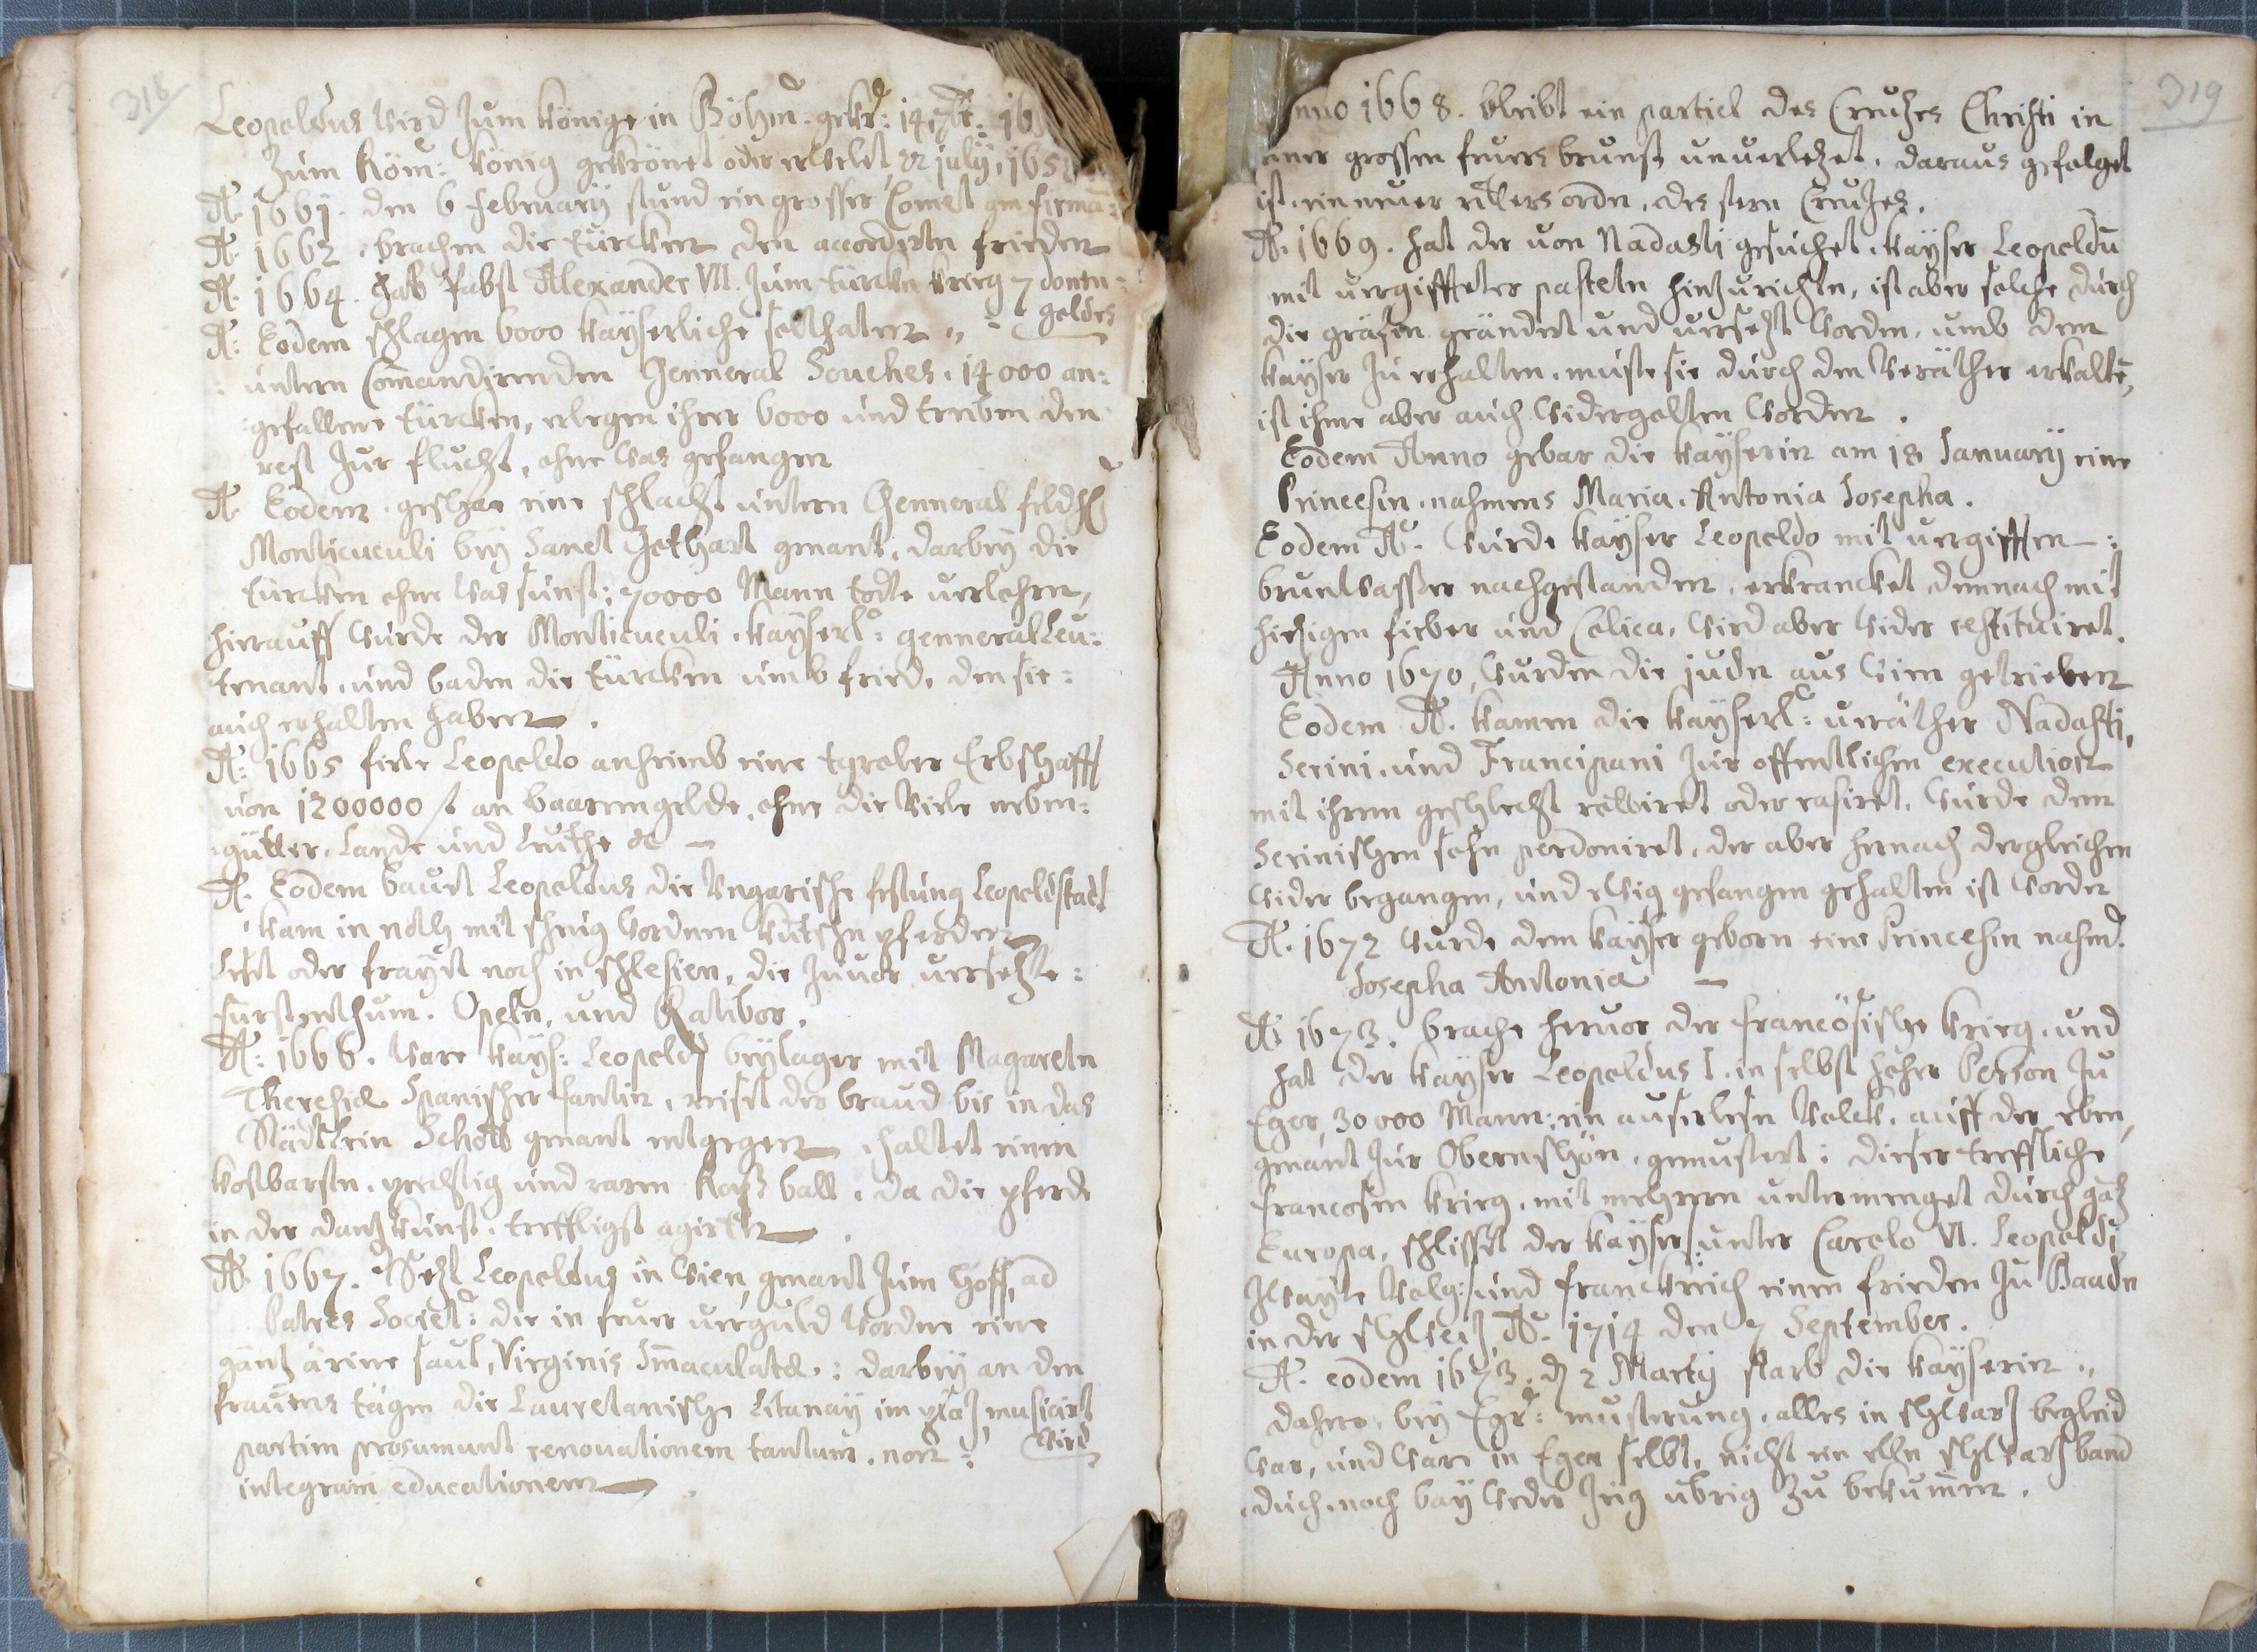 318
Leopoldus wird zum Könige in Böhm: gekr: 14 7br: 16
zum Röm: König gekrönet oder erwelet, 22 july, 165
A: 1661. den 6 february stund ein grosser Comet am firma:
A: 1662. brachen die türcken den accordirten frieden
A: 1664. gab Pabst Alexander VII. zum türcken krieg 7 donen
geldes
A: Eodem schlagen 6000 kayserliche solthaten,,
untern Comandirenden Genneral Souches. 14000 an:
gefallene türcken, erlegen ihrer 6000 und treiben den
rest zur flucht, ohne was gefangen
A: Eodem. geschae eine schlacht untern Genneral feldh
Monticuculi bey Sanct Gothart genant. darbey die
türcken ohne was sunst: 70000 Mann todte verlohren,
hierauff wurde der Monticuculi. kayserl: genneral Leu:
tenant. und baden die türcken umb fried. den sie:
auch erhalten haben.
A: 1665 fiele Leopoldo anheimb eine tyroler Erbschafft
von 1200000 f an baarengelde. ohne die viele neben:
gütter. Lande und Leuthe &
A. Eodem bauet Leopoldus die Ungarische festung Leopoldstatt
kam in noth mit scheüg wordenen kutschn pferden
Lest oder frayet noch in schlesien. die zuvor versetzte:
fürstenthum. Opeln, und Ratibor.
A: 1666. ware kays: Leopoldj beylager mit Magareten
Theresia Spanischer fantin, reiset der braud bis in das
Städtlein Schott genant entgegen, haltet einen
kostbarsten. prechtig und raren Roß ball. da die pferde
in der dantz kunst. treffligst agirten
A: 1667. Setzt Leopoldus in Wien, genant zum hoff, ad
Patres Societ: die in feuer verguld wordene eine
gantz ärine saul, Virginis Immaculatæ: darbey an den
frauens tägen die Lauretanische Litanay im platz, musicirt
wird
partim prosumunt renovationem tantum. non:
integram educationem
319
nno 1668. bleibt ein partiel des Creutzes Christi in
einer grossen feuers brunst unverletzet. daraus gefolget
ist. ein neuer ritters ordn. des stern Creutzes.
A: 1669. hat der von Nadasti gesuchet. kayser Leopoldū
mit vergiffteter pasteten hinzurichtn, ist aber solche durch
die gräfin geändert und versetzt worden. umb dem
kayser zu erhalten. muste sie durch den veräther erkaltē,
ist ihme aber auch widergolten worden.
Eodem Anno gebar die kayserin am 18 January eine
Princesin. nahmens Maria. Antonia Josepha.
Eodem A: wurde kayser Leopoldo mit vergifften:
brunwasser nachgestanden. erkrancket demnach mit
hitzigen fieber und Colica, wird aber wider restituiret.
Anno 1670, wurden die juden aus Wien getrieben
Eodem A. kamen die kayserl: veräther Nadasti,
Serini. und Francipani zur offentlichen execution
mit ihren geschlecht oder rasiret. wurde dem
Serinischen sohn perdoniret. der aber hernach dergleichen
wider begangen, und ewig gefangen gehalten ist worden
A. 1672 wurde dem kayser geborn eine Princesin nahmd.
Josepha Antonia
A: 1673. brache hervor der francösische krieg. und
hat der kayser Leopoldus I. in selbst hoher Person zu
Eger, 30000 Mann: ein auserlesn volck. auff der eben,
genant zur Obernschön. gemustert: dieser treffliche
francosen krieg. mit mehrern untermenget durch gätz
Europa, schlisset der kayser/: unter Carolo VI. Leopoldi
zwayte: und franckreich einen frieden zu Baadn
in der schweitz, A: 1714 den 7 September.
A: eodem 1673. d 2 Marty starb die kayserin,,
dahero. bey Egr: musterung. alles in schwartz begleid
war, und ware in Eger selbt. nicht ein elln schwartz band
duch. noch bay weder zeüg ubrig zu bekummen.